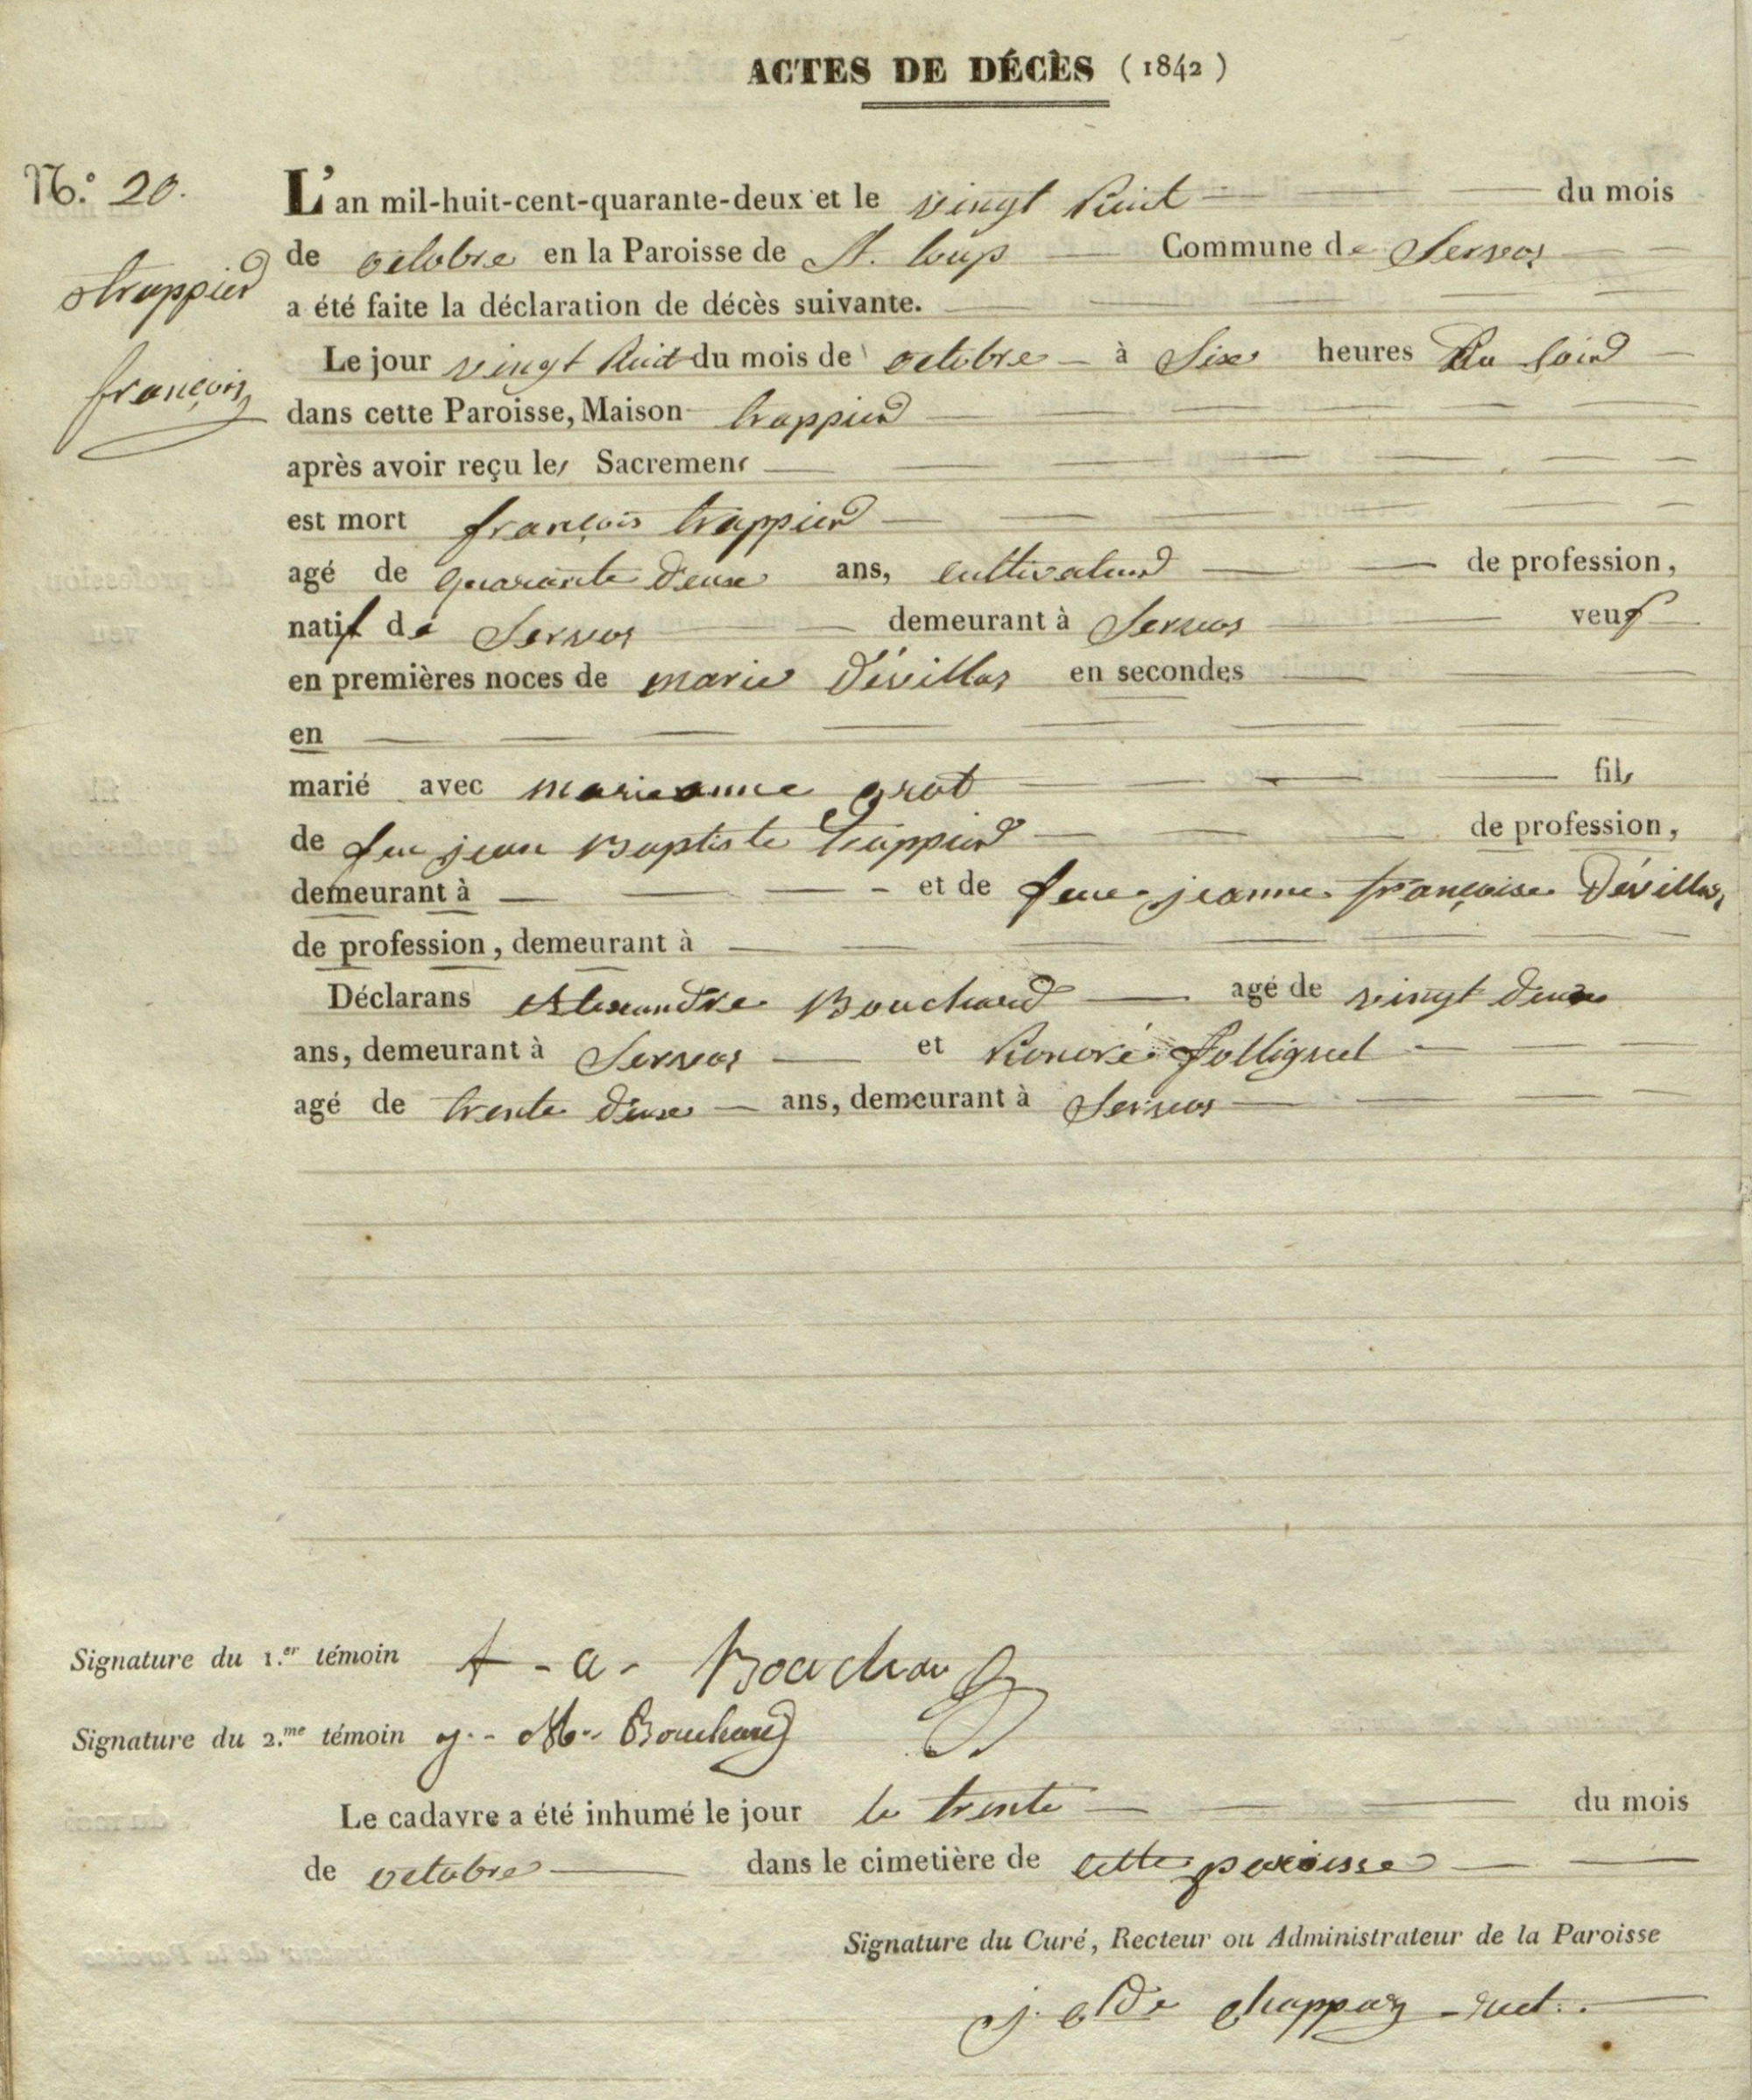 ACTES DE DÉCÈS (1842)
N.° 20.
trappier
françois
L'an mil-huit-cent-quarante-deux et le vingt huit du mois
de octobre en la Paroisse de St. loup Commune de Servos
a été faite la déclaration de décès suivante.
Le jour vingt huit du mois de octobre à Six heures Du soir
dans cette Paroisse, Maison trappier
après avoir reçu les Sacremens
est mort françois trappier
agé de quarante deux ans, cultivateur de profession,
natif de Servos demeurant à Servos veuf
en premières noces de marie Dévillas en secondes
en
marié avec marieanne grat fils
de feu jean Baptiste trappier de profession,
demeurant à et de feue jeanne françoise Dévillas,
de profession, demeurant à
Déclarans Alexandre Bouchard agé de vingt deux
ans, demeurant à Servos et honoré folliguet
agé de trente deux ans, demeurant à Servos
Signature du 1.er témoin - a - Bouchard
Signature du 2.me témoin j. - M. Bouchard
Le cadavre a été inhumé le jour le trente du mois
de octobre dans le cimetière de cette paroisse
Signature du Curé, Recteur ou Administrateur de la Paroisse
j. chappaz rect.